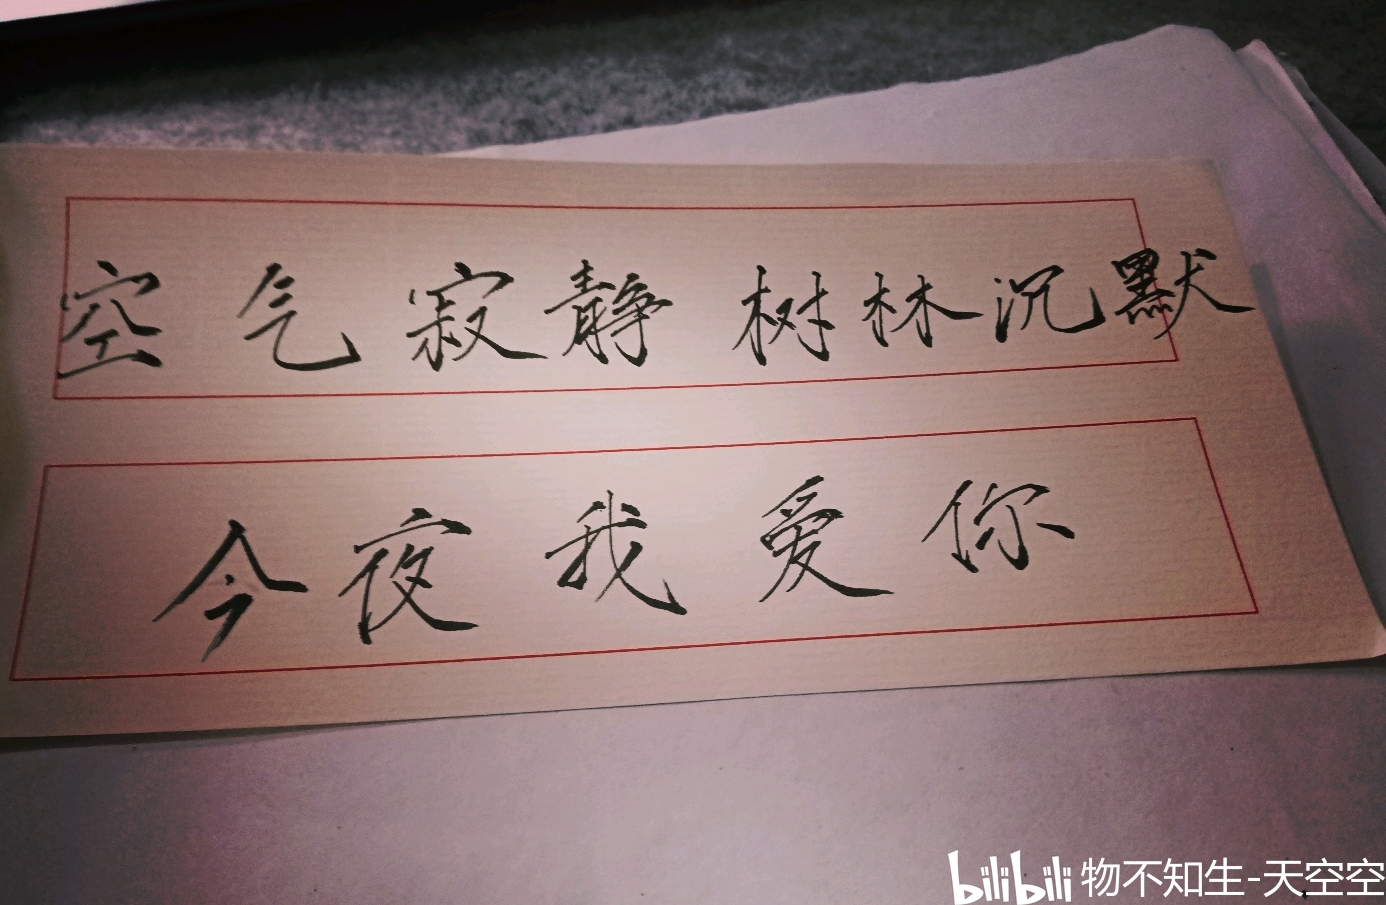 空气寂静 树林沉默
今夜我爱你
bilibili 物不知生-天空空